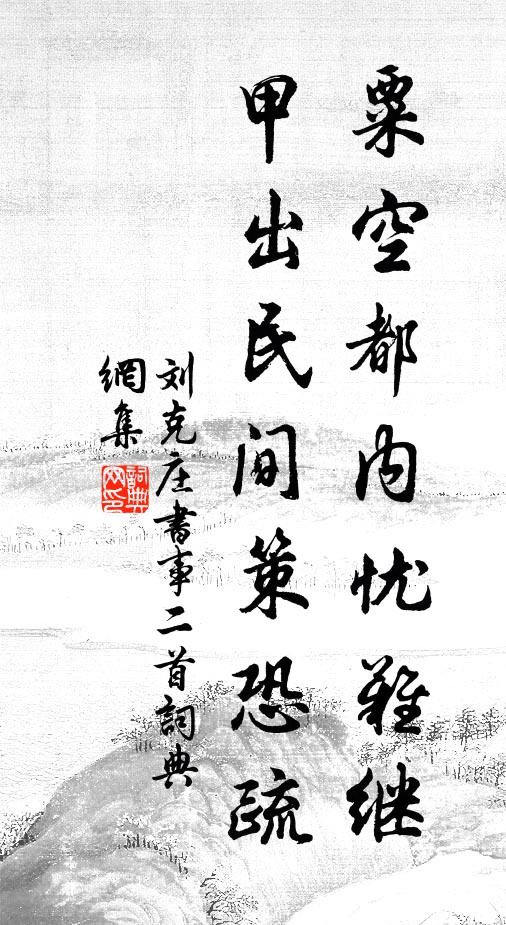 粟空都内忧难继
甲出民间策恐疏
刘克庄書事二首詞典
網集
詞典
网印